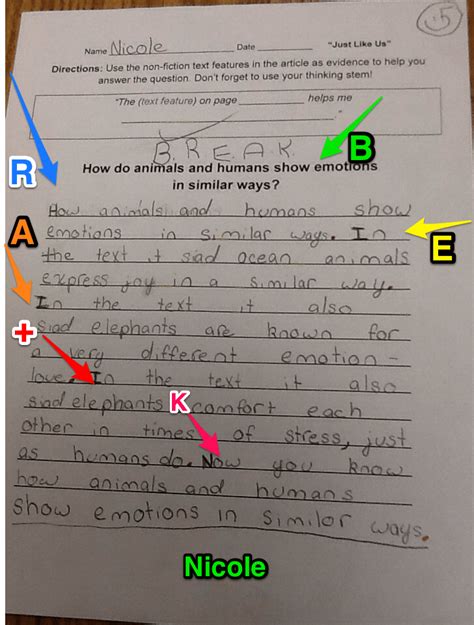 :5
Name Nicole Date "Just Like Us"
Directions: Use the non-fiction text features in the article as evidence to help you
answer the question. Don't forget to use your thinking stem!
"The (text feature) on page helps me
."
B.R.E.A.K.
B
How do animals and humans show emotions
in similar ways?
R
How animals and humans show
A
emotions in similar ways. In
E
the text it siad ocean animals
express joy in a similar way.
In the text it also
+
siad elephants are known for
a very different emotion-
love. In the text it also
K
siad elephants comfort each
other in times of stress, just
as humans do. Now you know
how animals and humans
show emotions in similor ways.
Nicole